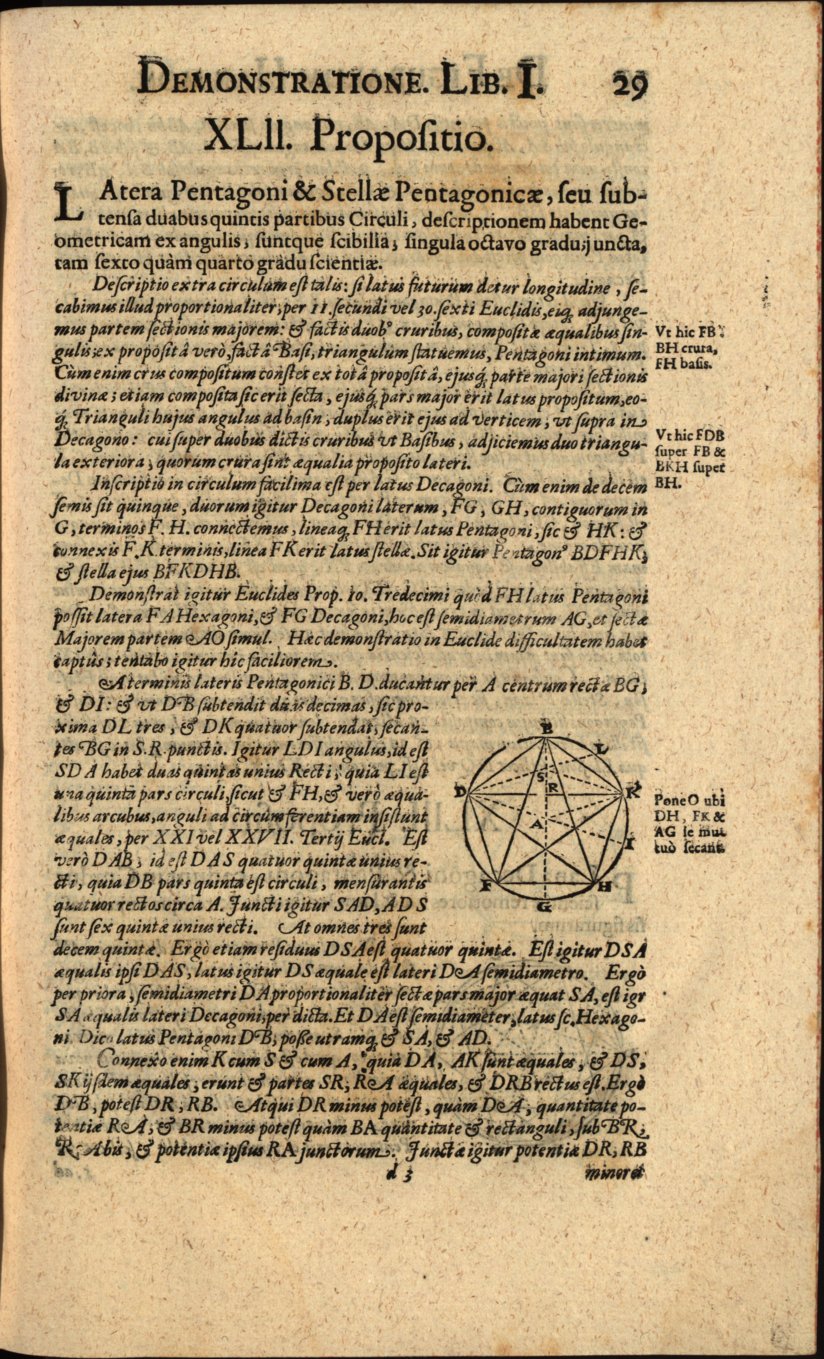 DEMONSTRATIONE. LIB. I. 29
XLII. Propoſitio.
LAtera Pentagoni & Stellæ Pentagonicæ, ſeu ſub-
tenſa duabus quintis partibus Circuli, deſcriptionem habent Ge-
ometricam ex angulis, ſuntque ſcibilia; ſingula octavo gradu; juncta,
tam ſexto quàm quarto gradu ſcientiæ.
Deſcriptio extra circulum eſt talis: ſi latus futurum detur longitudine, ſe-
cabimus illud proportionaliter, per 11. ſecundi vel 30. ſexti Euclidis, eiq́ adjunge-
mus partem ſectionis majorem: & factis duobꝰ cruribus, compoſitæ æqualibus ſin-
gulis; ex propoſitâ verò, factâ Baſi, triangulum ſtatuemus, Pentagoni intimum.
Cùm enim crus compoſitum conſtet ex totâ propoſitâ, ejusq́ parte majori ſectionis
divinæ; etiam compoſita ſic erit ſecta, ejusq́ pars major erit latus propoſitum, eo-
q́ Trianguli hujus angulus ad baſin, duplus erit ejus ad verticem, vt ſupra in
Decagono: cui ſuper duobus dictis cruribus vt Baſibus, adjiciemus duo triangu-
la exteriora, quorum crura ſint æqualia propoſito lateri.
Inſcriptio in circulum facilima eſt per latus Decagoni. Cùm enim de decem
ſemis ſit quinque, duorum igitur Decagoni laterum, FG, GH, contiguorum in
G, terminos F. H. connectemus, lineaq́ FH erit latus Pentagoni, ſic & HK: &
connexis F. K. terminis, linea FK erit latus ſtellæ. Sit igitur Pentagonꝰ BDFHK,
& ſtella ejus BFKDHB.
Demonſtrat igitur Euclides Prop. 10. Tredecimi quòd FH latus Pentagoni
poſſit latera FA Hexagoni, & FG Decagoni, hoc eſt ſemidiametrum AG, et ſectæ
Majorem partem AO ſimul. Hæc demonſtratio in Euclide difficultatem habet
captûs; tentabo igitur hic faciliorem.
A terminis lateris Pentagonici B. D. ducantur per A centrum rectæ BG,
& DI: & vt DB ſubtendit duas decimas, ſic pro-
xima DL tres, & DK quatuor ſubtendat, ſecan-
tes BG in S. R. punctis. Igitur LDI angulus, id eſt
SDA habet duas quintas unius Recti; quia LI eſt
una quinta pars circuli, ſicut & FH, & verò æqua-
libus arcubus, anguli ad circumferentiam inſiſtunt
æquales, per XXI vel XXVII. Tertij Eucl. Eſt
verò DAB, id eſt DAS quatuor quintæ unius re-
cti, quia DB pars quinta eſt circuli, menſurantis
quatuor rectos circa A. Juncti igitur SAD, ADS
ſunt ſex quintæ unius recti. At omnes tres ſunt
decem quintæ. Ergò etiam reſiduus DSA eſt quatuor quintæ. Eſt igitur DSA
æqualis ipſi DAS, latus igitur DS æquale eſt lateri DA ſemidiametro. Ergò
per priora, ſemidiametri DA proportionaliter ſectæ pars major æquat SA, eſt igr
SA æqualis lateri Decagoni, per dicta. Et DA eſt ſemidiameter, latus ſc. Hexago-
ni. Dico latus Pentagoni DB, poſſe utramq́ & SA, & AD.
Connexo enim K cum S & cum A, quia DA, AK ſunt æquales, & DS,
SK ijſdem æquales, erunt & partes SR, RA æquales, & DRB rectus eſt. Ergò
DB, poteſt DR, RB. Atqui DR minus poteſt, quàm DA, quantitate po-
tentiæ RA, & BR minus poteſt quàm BA quantitate & rectanguli, ſub BR,
RA bis, & potentiæ ipſius RA junctorum. Junctæ igitur potentiæ DR, RB
d 3 minores
Vt hic FB
BH crura,
FH baſis.
Vt hic FDB
ſuper FB &
BKH ſuper
BH.
Pone O ubi
DH, FK &
AG ſe mu-
tuò ſecant.
B
L
S
R
D
K
A
I
F
H
G